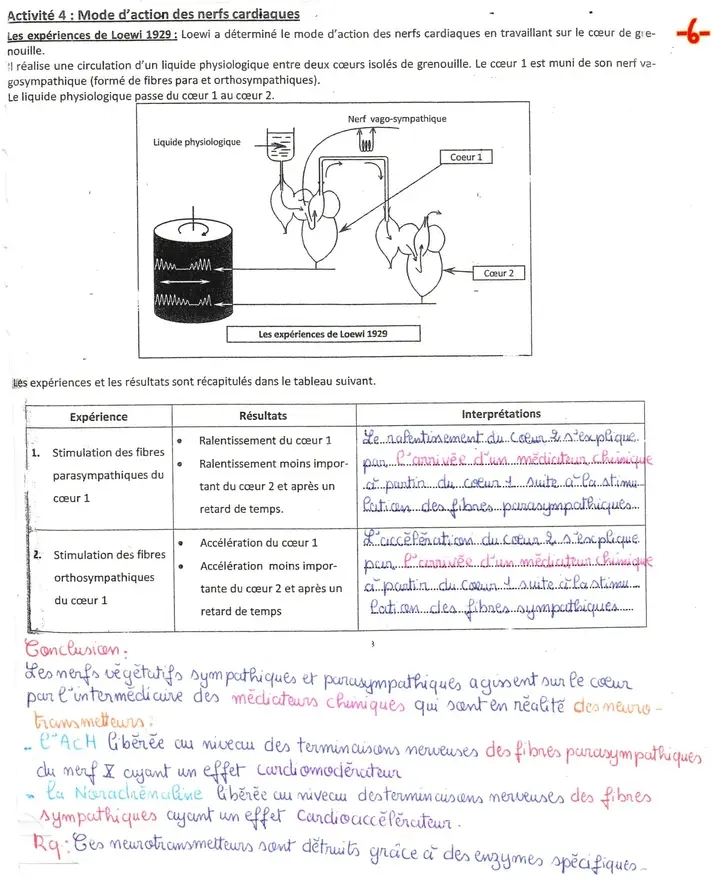 Activité 4 : Mode d'action des nerfs cardiaques
-6-
Les expériences de Loewi 1929 : Loewi a déterminé le mode d'action des nerfs cardiaques en travaillant sur le cœur de gre-
nouille.
Il réalise une circulation d'un liquide physiologique entre deux cœurs isolés de grenouille. Le cœur 1 est muni de son nerf va-
gosympathique (formé de fibres para et orthosympathiques).
Le liquide physiologique passe du cœur 1 au cœur 2.
Nerf vago-sympathique
Liquide physiologique
Coeur 1
Cœur 2
Les expériences de Loewi 1929
Les expériences et les résultats sont récapitulés dans le tableau suivant.
Expérience
Résultats
Interprétations
1. Stimulation des fibres
parasympathiques du
cœur 1
• Ralentissement du cœur 1
• Ralentissement moins impor-
tant du cœur 2 et après un
retard de temps.
Le ralentissement du cœur 2 s'explique
par l'arrivée d'un médiateur chimique
à partir du cœur 1 suite à la stimu-
lation des fibres parasympathiques
2. Stimulation des fibres
orthosympathiques
du cœur 1
• Accélération du cœur 1
• Accélération moins impor-
tante du cœur 2 et après un
retard de temps
L'accélération du cœur 2 s'explique
par l'arrivée d'un médiateur chimique
à partir du cœur 1 suite à la stimu-
lation des fibres sympathiques
Conclusion :
Les nerfs végétatifs sympathiques et parasympathiques agissent sur le cœur
par l'intermédiaire des médiateurs chimiques qui sont en réalité des neuro-
transmetteurs :
- l'AcH libérée au niveau des terminaisons nerveuses des fibres parasympathiques
du nerf X ayant un effet cardiomodérateur
- la Noradrénaline libérée au niveau des terminaisons nerveuses des fibres
sympathiques ayant un effet cardioaccélérateur.
Rq : Ces neurotransmetteurs sont détruits grâce à des enzymes spécifiques-